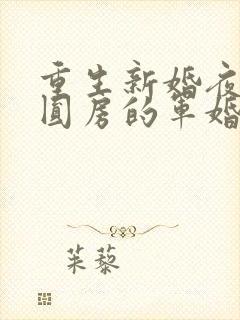 重生新婚夜
圆房的军婚
茱藜